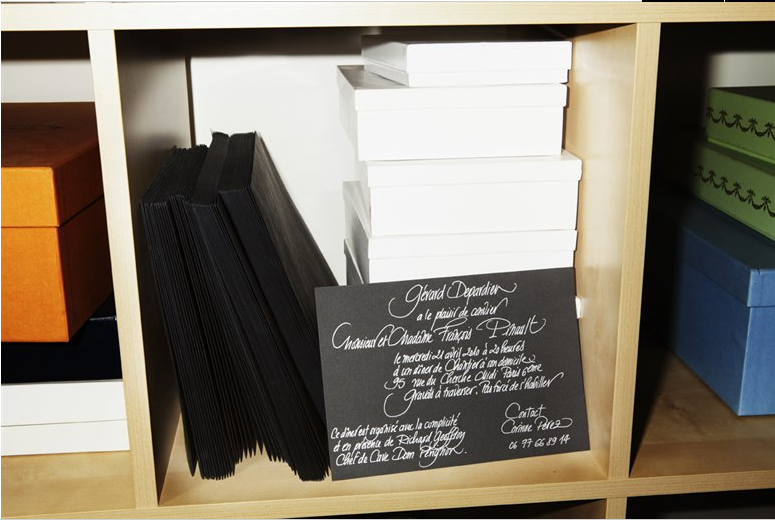 Gérard Depardieu
a le plaisir de convier
Monsieur et Madame François Pinault
le mercredi 21 avril 2010 à 20 heures
à un dîner de Chantier à son domicile
95 rue du Cherche Midi Paris 6ème
Gravats à traverser. Pas forcé de s'habiller
Ce dîner est organisé avec la complicité
et en présence de Richard Geoffroy
Chef de Cave Dom Pérignon.
Contact
Corinne Perez
06 77 66 89 14